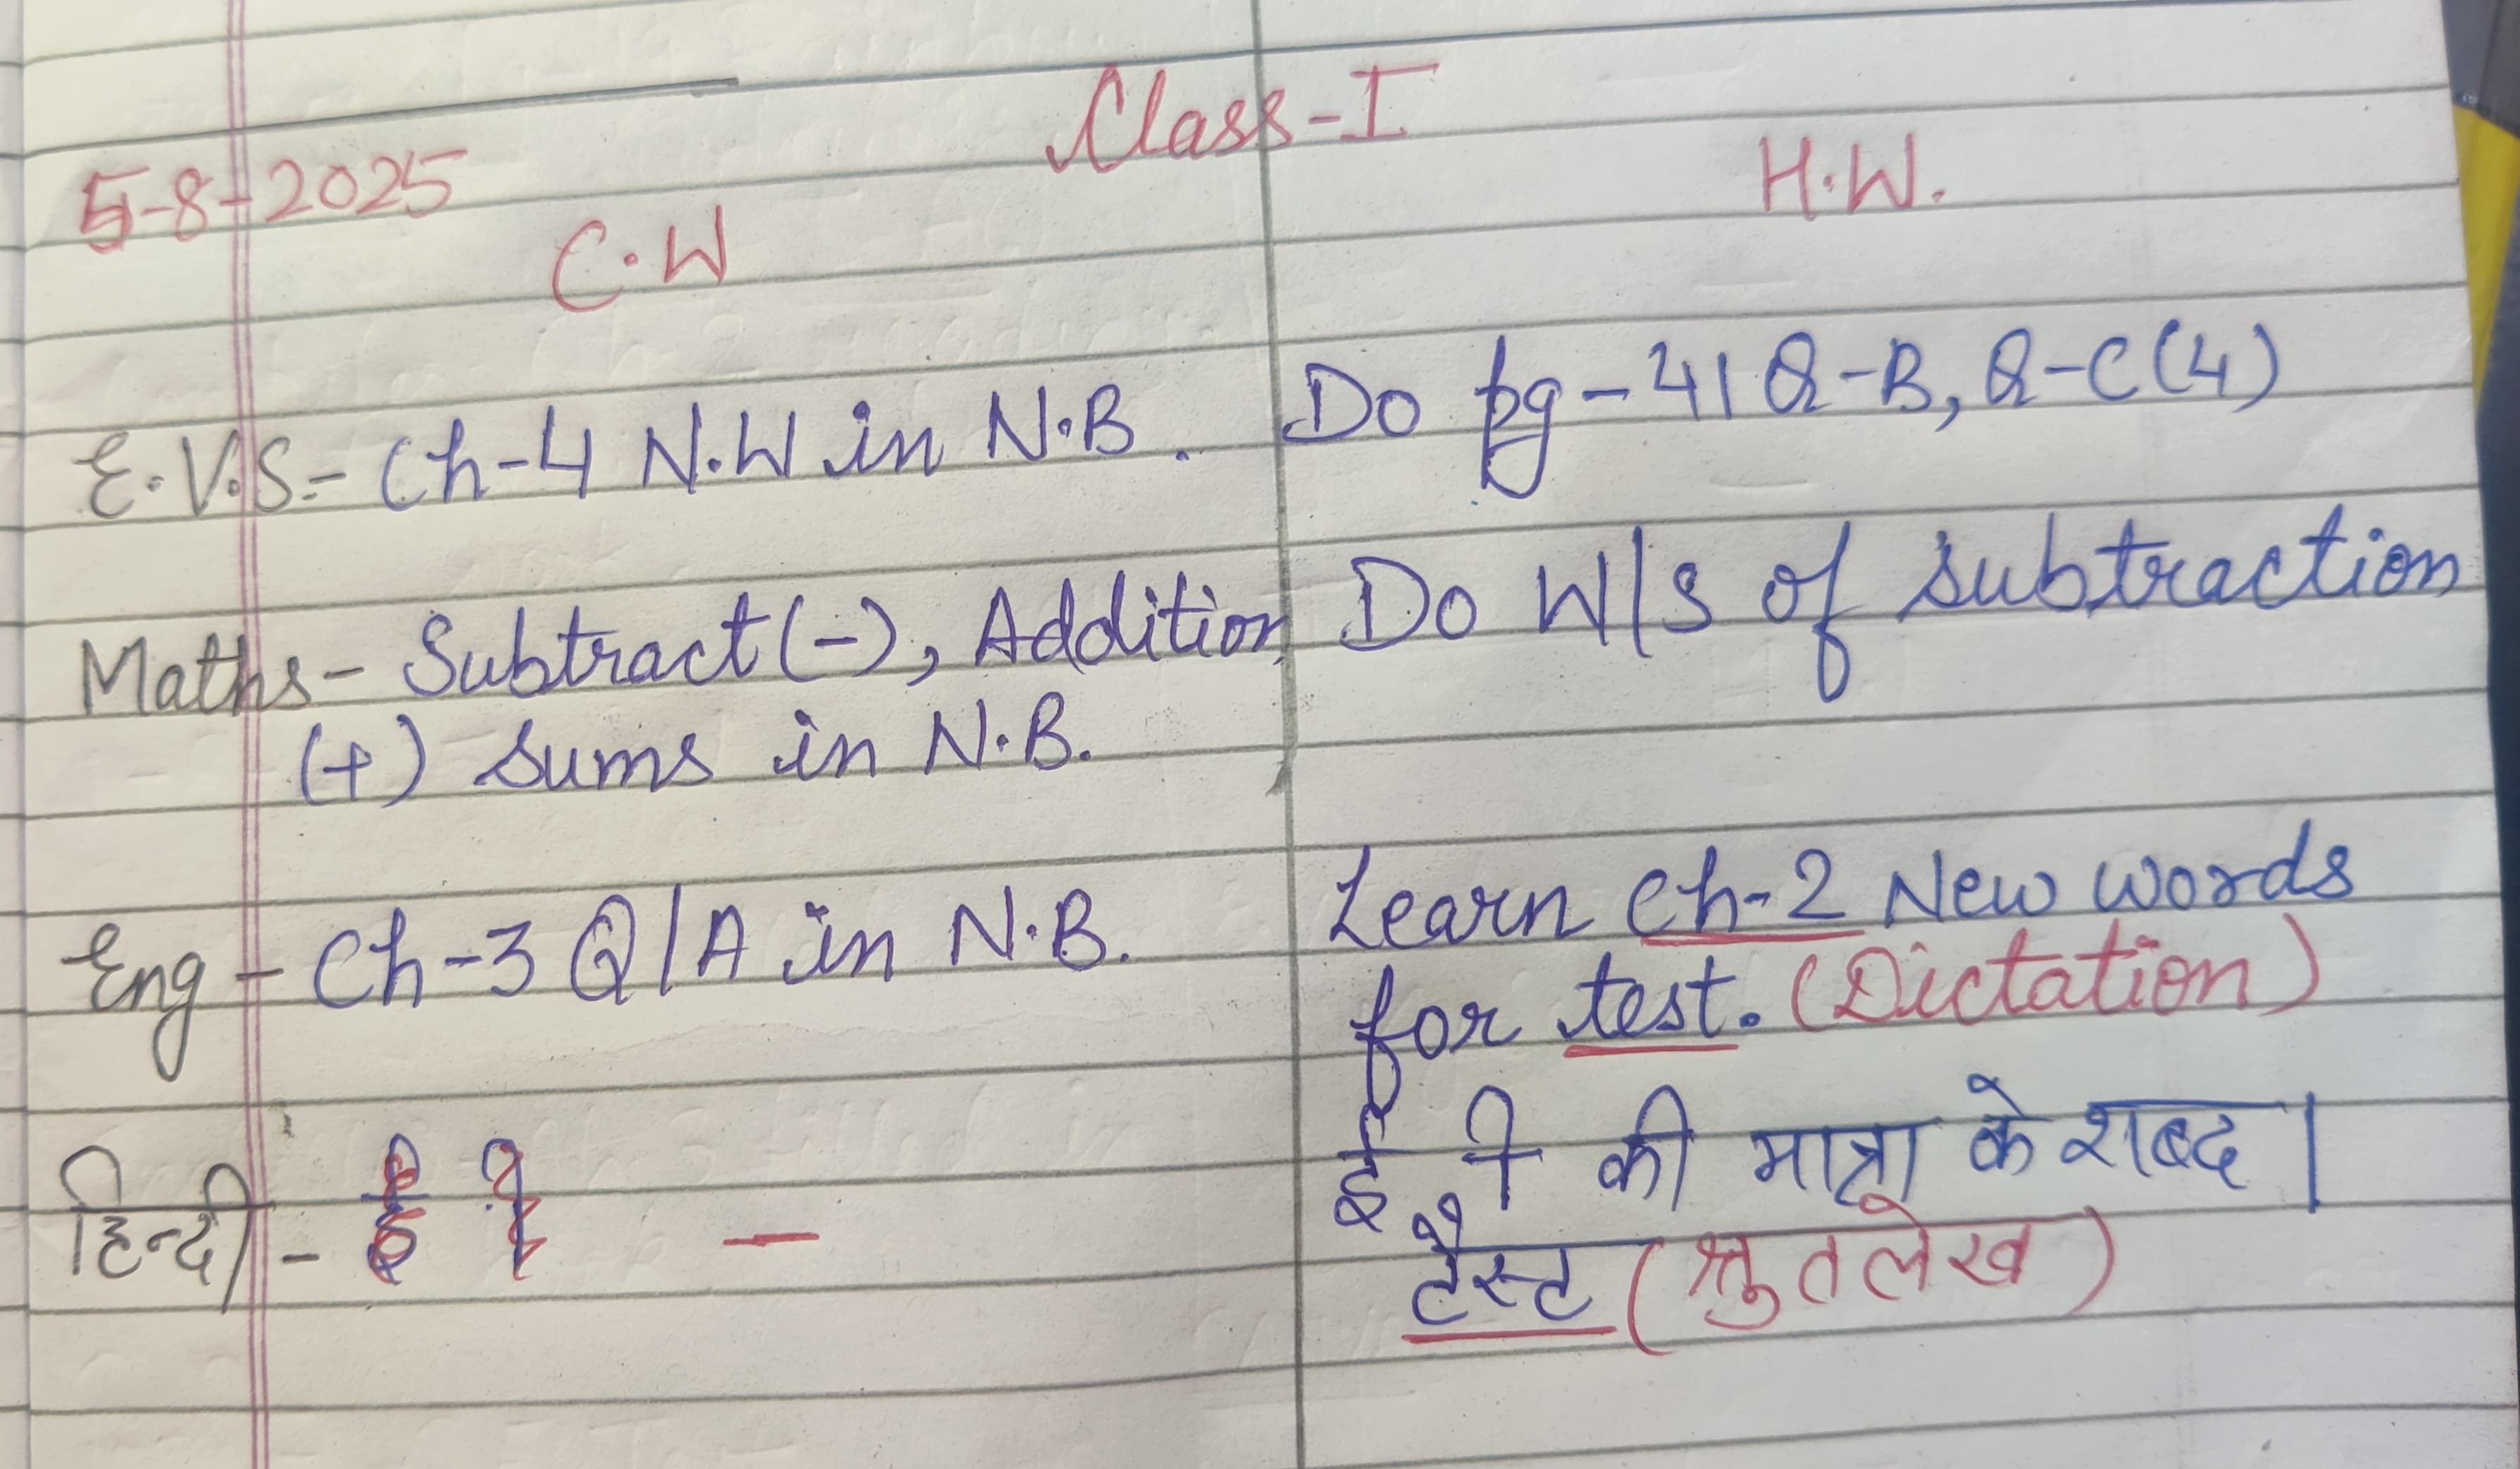 Class-I
5-8-2025
C.W
H.W.
E.V.S.- Ch-4 N.W in N.B.
Do pg-41 Q-B, Q-C(4)
Maths- Subtract(-), Addition
(+) sums in N.B.
Do W/S of subtraction
Eng - Ch-3 Q/A in N.B.
Learn Ch-2 New words
for test. (Dictation)
हिन्दी -
—
ई ी की मात्रा के शब्द।
टैस्ट (श्रुतलेख)